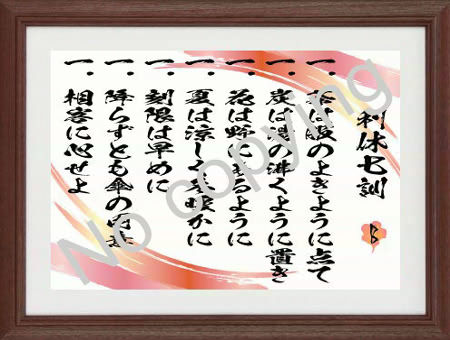 利休七訓
一、茶は服のよきように点て
一、炭は湯の沸くように置き
一、花は野にあるように
一、夏は涼しく冬暖かに
一、刻限は早めに
一、降らずとも傘の用意
一、相客に心せよ
No copying